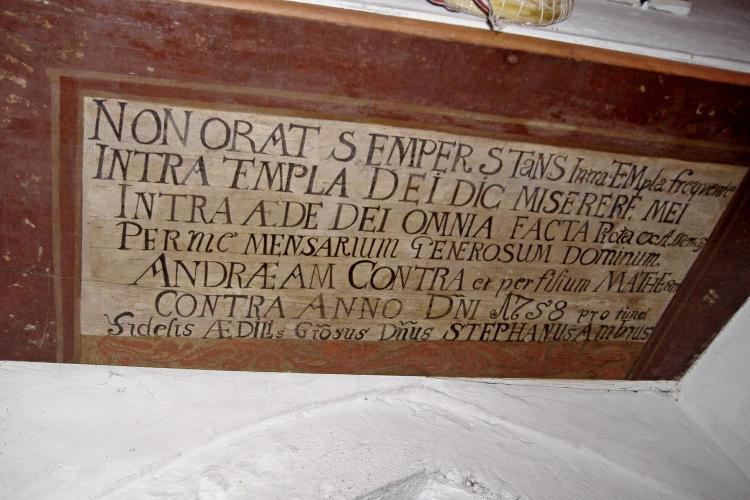 NON ORAT SEMPER STaNS Intra TEMpla frequenter
INTRA TEMPLA DEI DIC MISERERE MEI
INTRA ÆDE DEI OMNIA FACTA
PER me MENSARIUM GENEROSUM DOMINUM.
ANDRÆAM CONTRA et per filium
CONTRA ANNO Dn̄I 1758 pro tunc
fidelis ÆDILis Grōsus Dn̄us STEPHANUS Ambrus